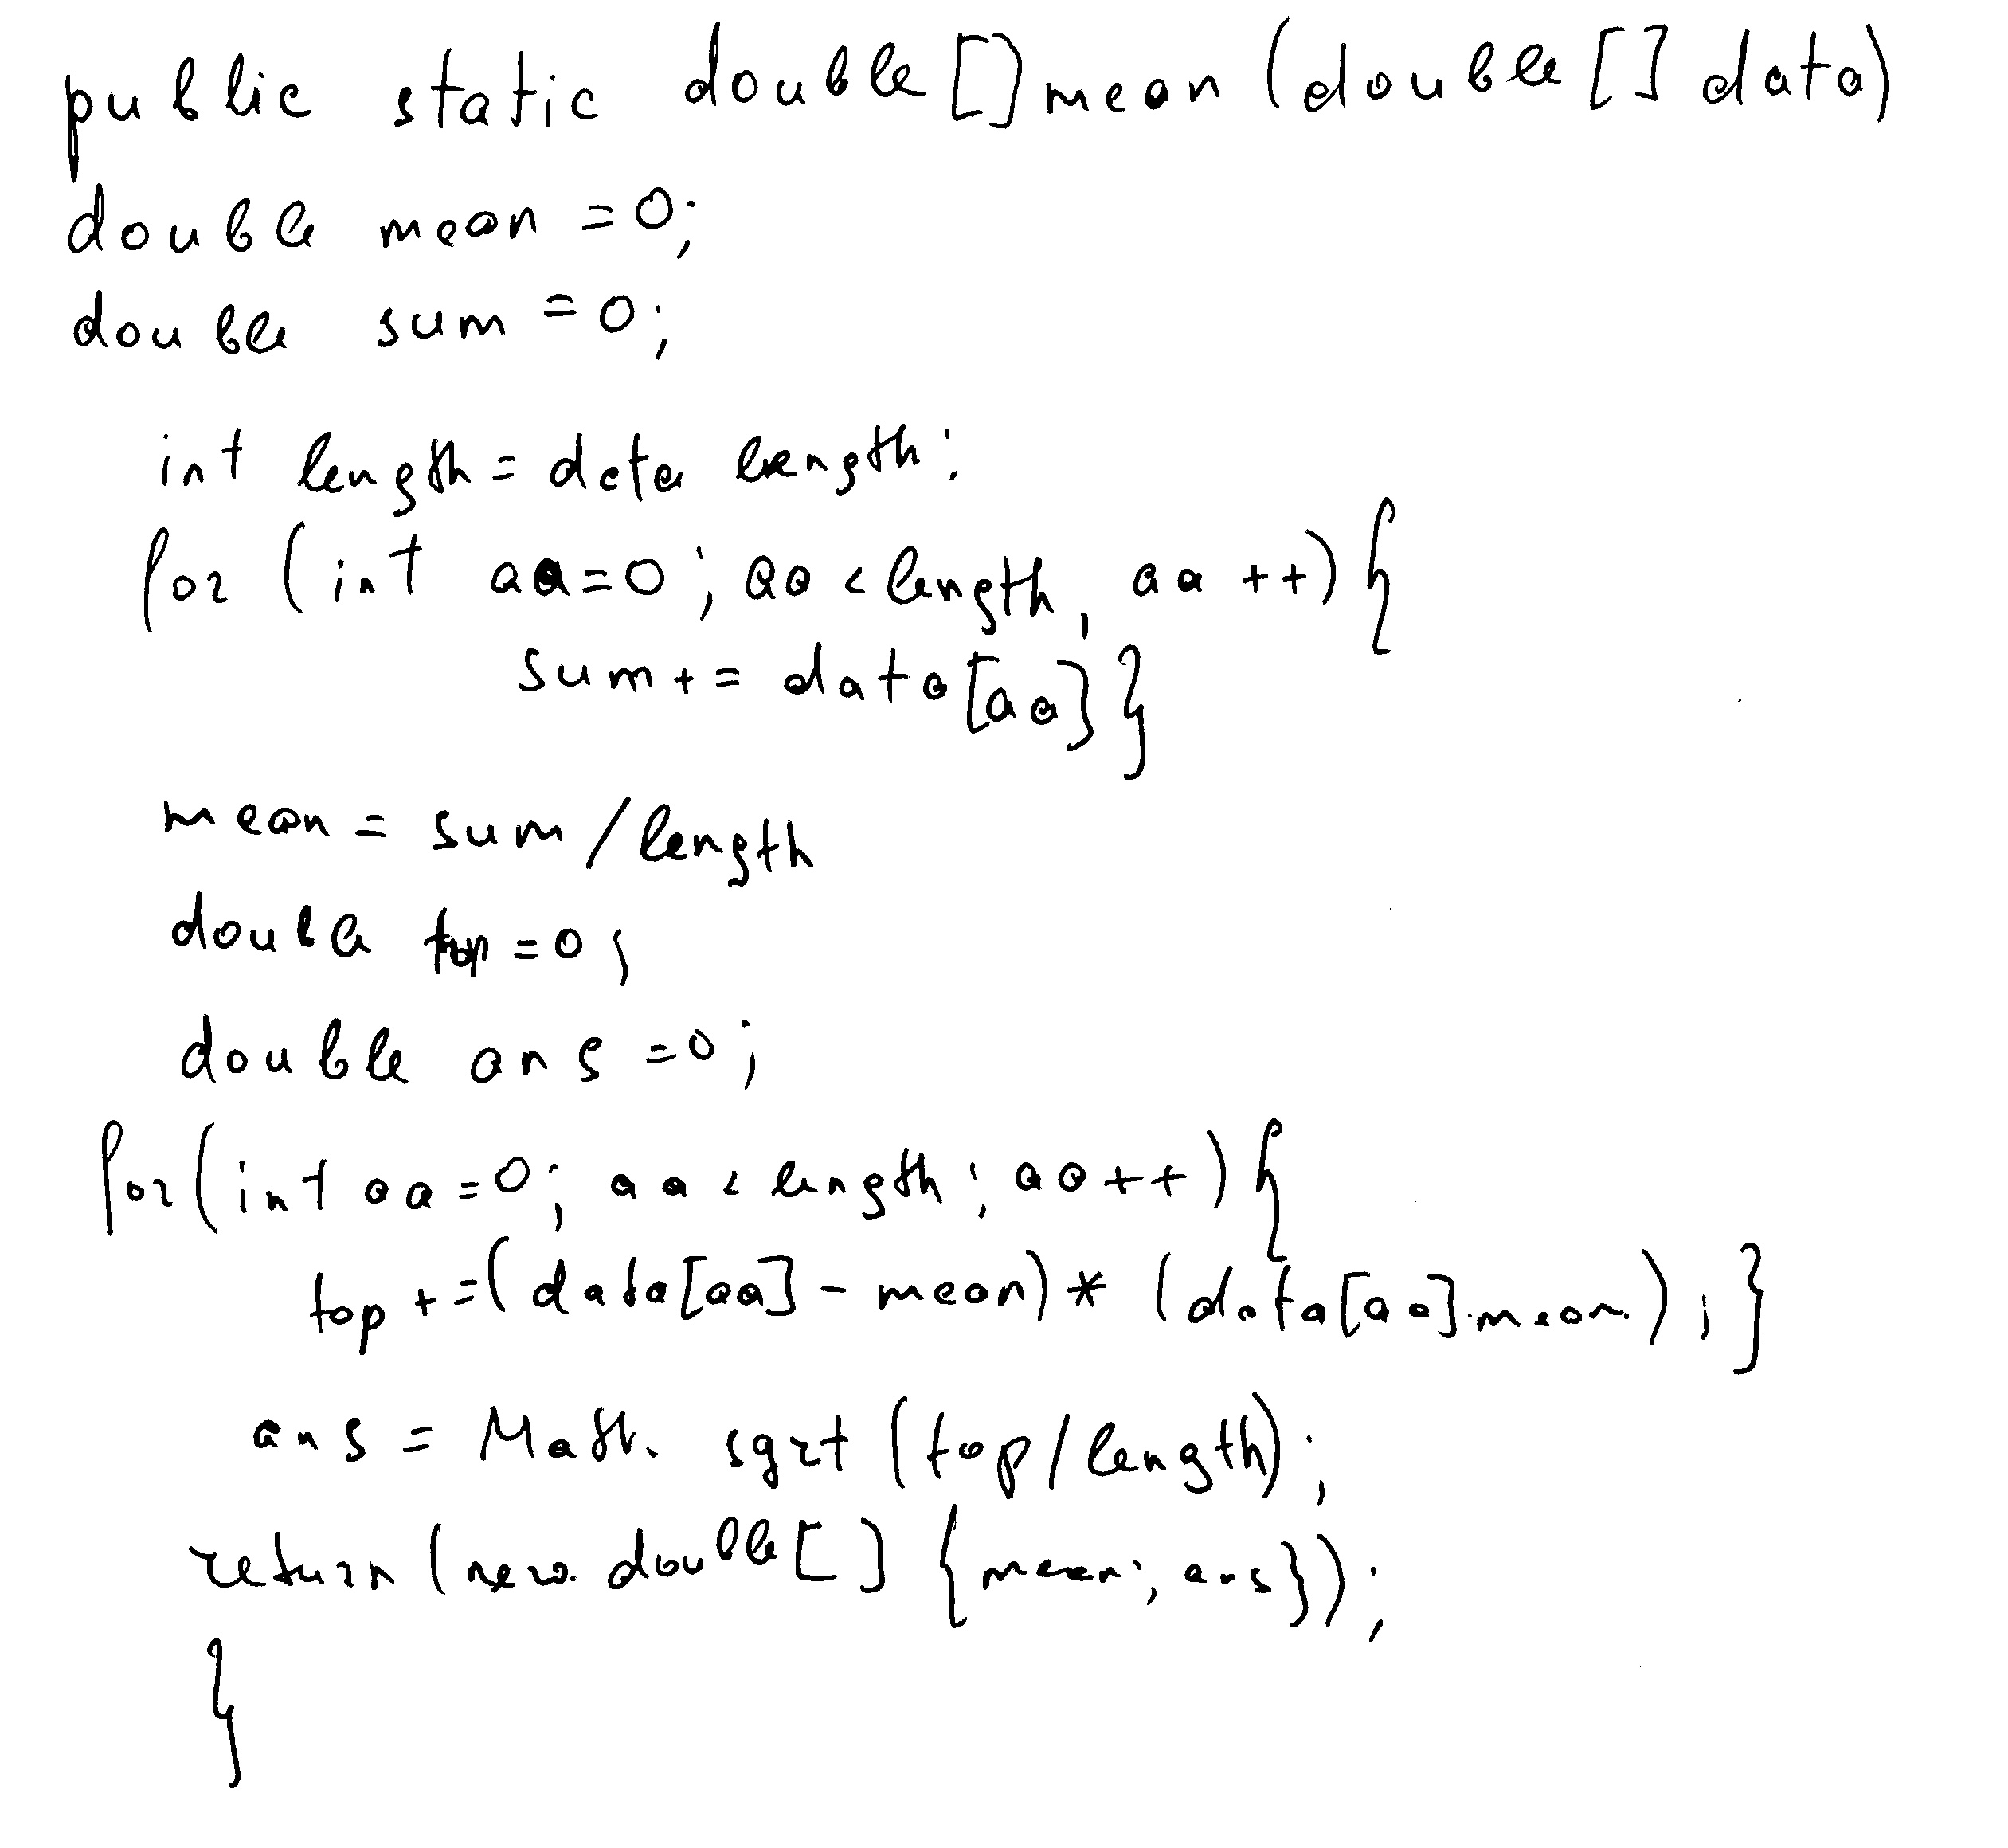 public static double[] mean (double[] data)
double mean = 0;
double sum = 0;
int length = data length;
for (int aa=0; aa < length, aa ++) {
sum += data[aa]}
mean = sum / length
double top = 0;
double ans = 0;
for (int aa=0; aa < length; aa++) {
top += (data[aa] - mean) * (data[aa].mean.);}
ans = Math. sqrt (top / length);
return (new. double[] {mean;, ans});
}